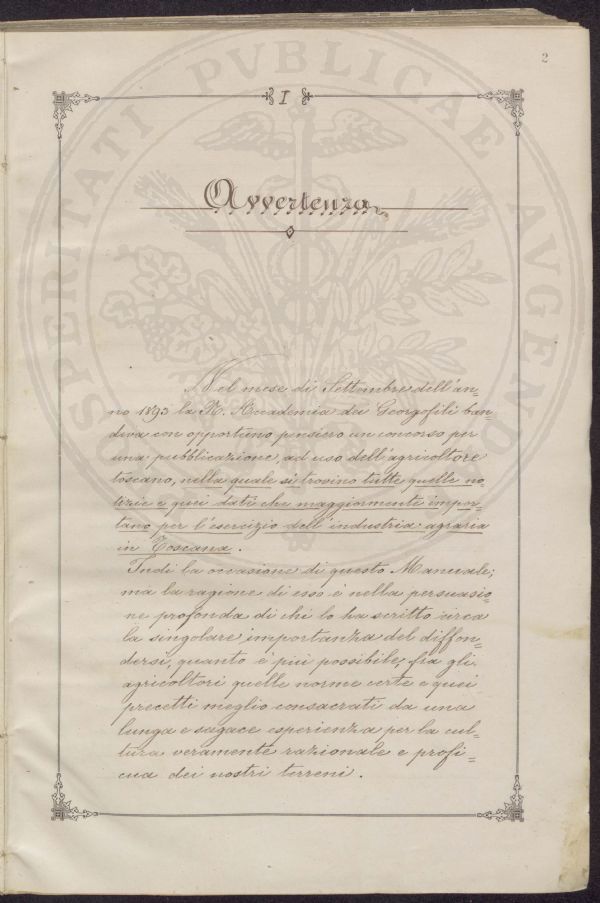 2
I
Avvertenza
Nel mese di Settembre dell'an=
no 1893 la R. Accademia dei Georgofili ban=
diva con opportuno pensiero un concorso per
una pubblicazione, ad uso dell'agricoltore
toscano, nella quale si trovino tutte quelle no=
tizie e quei dati che maggiormente impor=
tano per l'esercizio dell'industria agraria
in Toscana.
Indi la occasione di questo Manuale;
ma la ragione di esso è nella persuasio=
ne profonda di chi lo ha scritto circa
la singolare importanza del diffon=
dersi, quanto è più possibile, fra gli
agricoltori quelle norme certe e quei
precetti meglio consacrati da una
lunga e sagace esperienza per la cul=
tura veramente razionale e profi=
cua dei nostri terreni.
PROSPERITATI PVBLICAE AVGENDAE